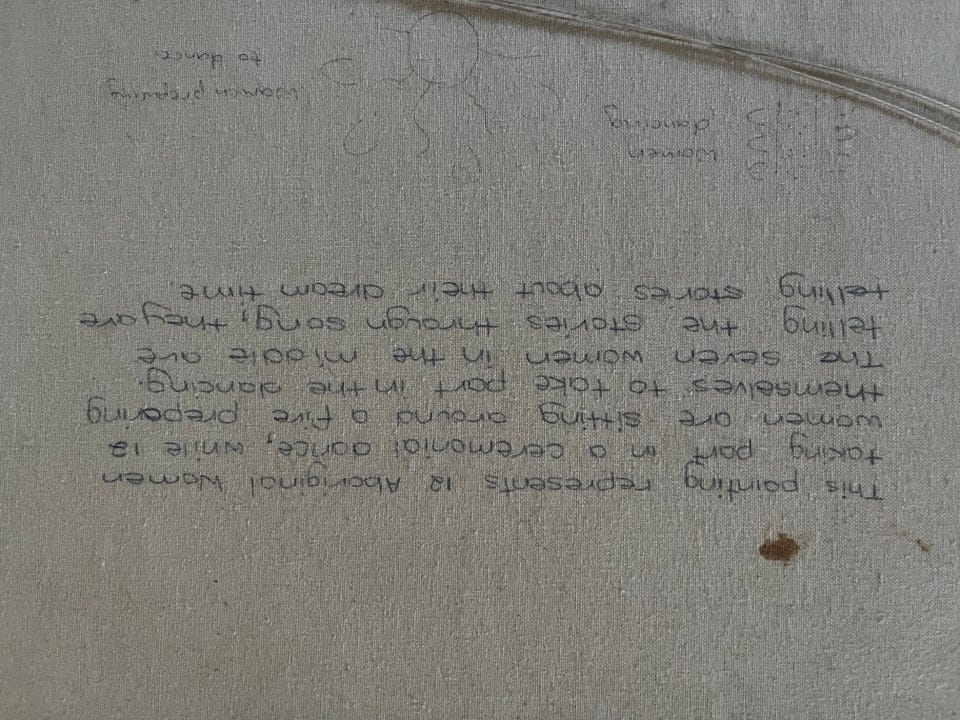 This painting represents 12 Aboriginal Women
taking part in a ceremonial dance, while 12
women are sitting around a fire preparing
themselves to take part in the dancing.
The seven women in the middle are
telling the stories through song, they are
telling stories about their dream time.
Women
dancing
Women preparing
to dance